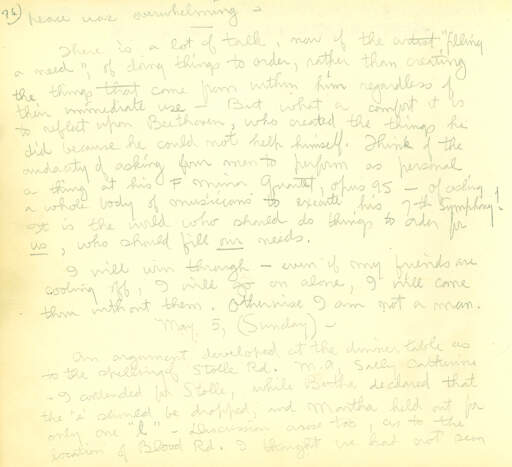 76) peace was overwhelming -
There is a lot of talk, now, of the artist "filling
a need", of doing things to order, rather than creating
the things that come from within him regardless of
their immediate use - But what a comfort it is
to reflect upon Beethoven, who created the things he
did because he could not help himself. Think of the
audacity of asking four men to perform as personal
a thing as his F minor Quartet, opus 95 - of asking
a whole body of musicians to execute his 7th Symphony!
It is the world who should do things to order for
us, who should fill our needs.
I will win through - even if my friends are
cooling off, I will go on alone, I will come
thru without them. Otherwise I am not a man.
May 5, (Sunday) -
An argument developed at the dinner table as
to the spelling of Stolle Rd. M.A, Sally Catherine
- I contended for Stolle, while Bertha declared that
the "e" should be dropped, and Martha held out for
only one "l" - Discussion arose too, as to the
location of Blood Rd. I thought we had not seen